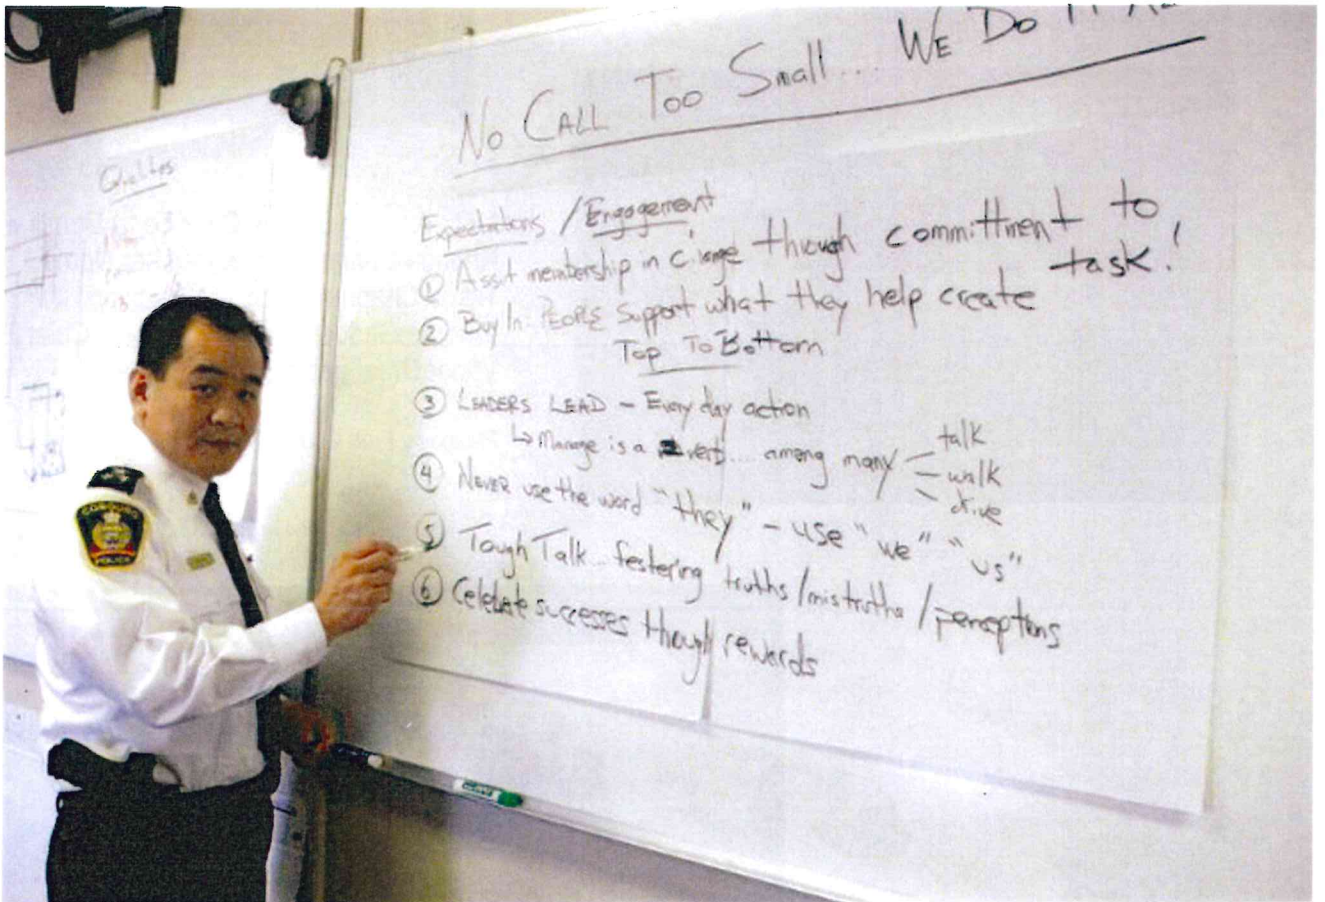 No CALL Too Small... WE Do IT
Expectations / Engagement
① Assit membership in change through committment to task!
② Buy In. PEOPLE Support what they help create
Top To Bottom
③ LEADERS LEAD - Every day action
↳ Manage is a verb... among many - talk
- walk
- drive
④ NEVER use the word "they" - use "we" "us"
⑤ Tough Talk.. festering truths/mistruths/perceptions
⑥ Celebrate successes though rewards
Qualites
COBOURG
POLICE